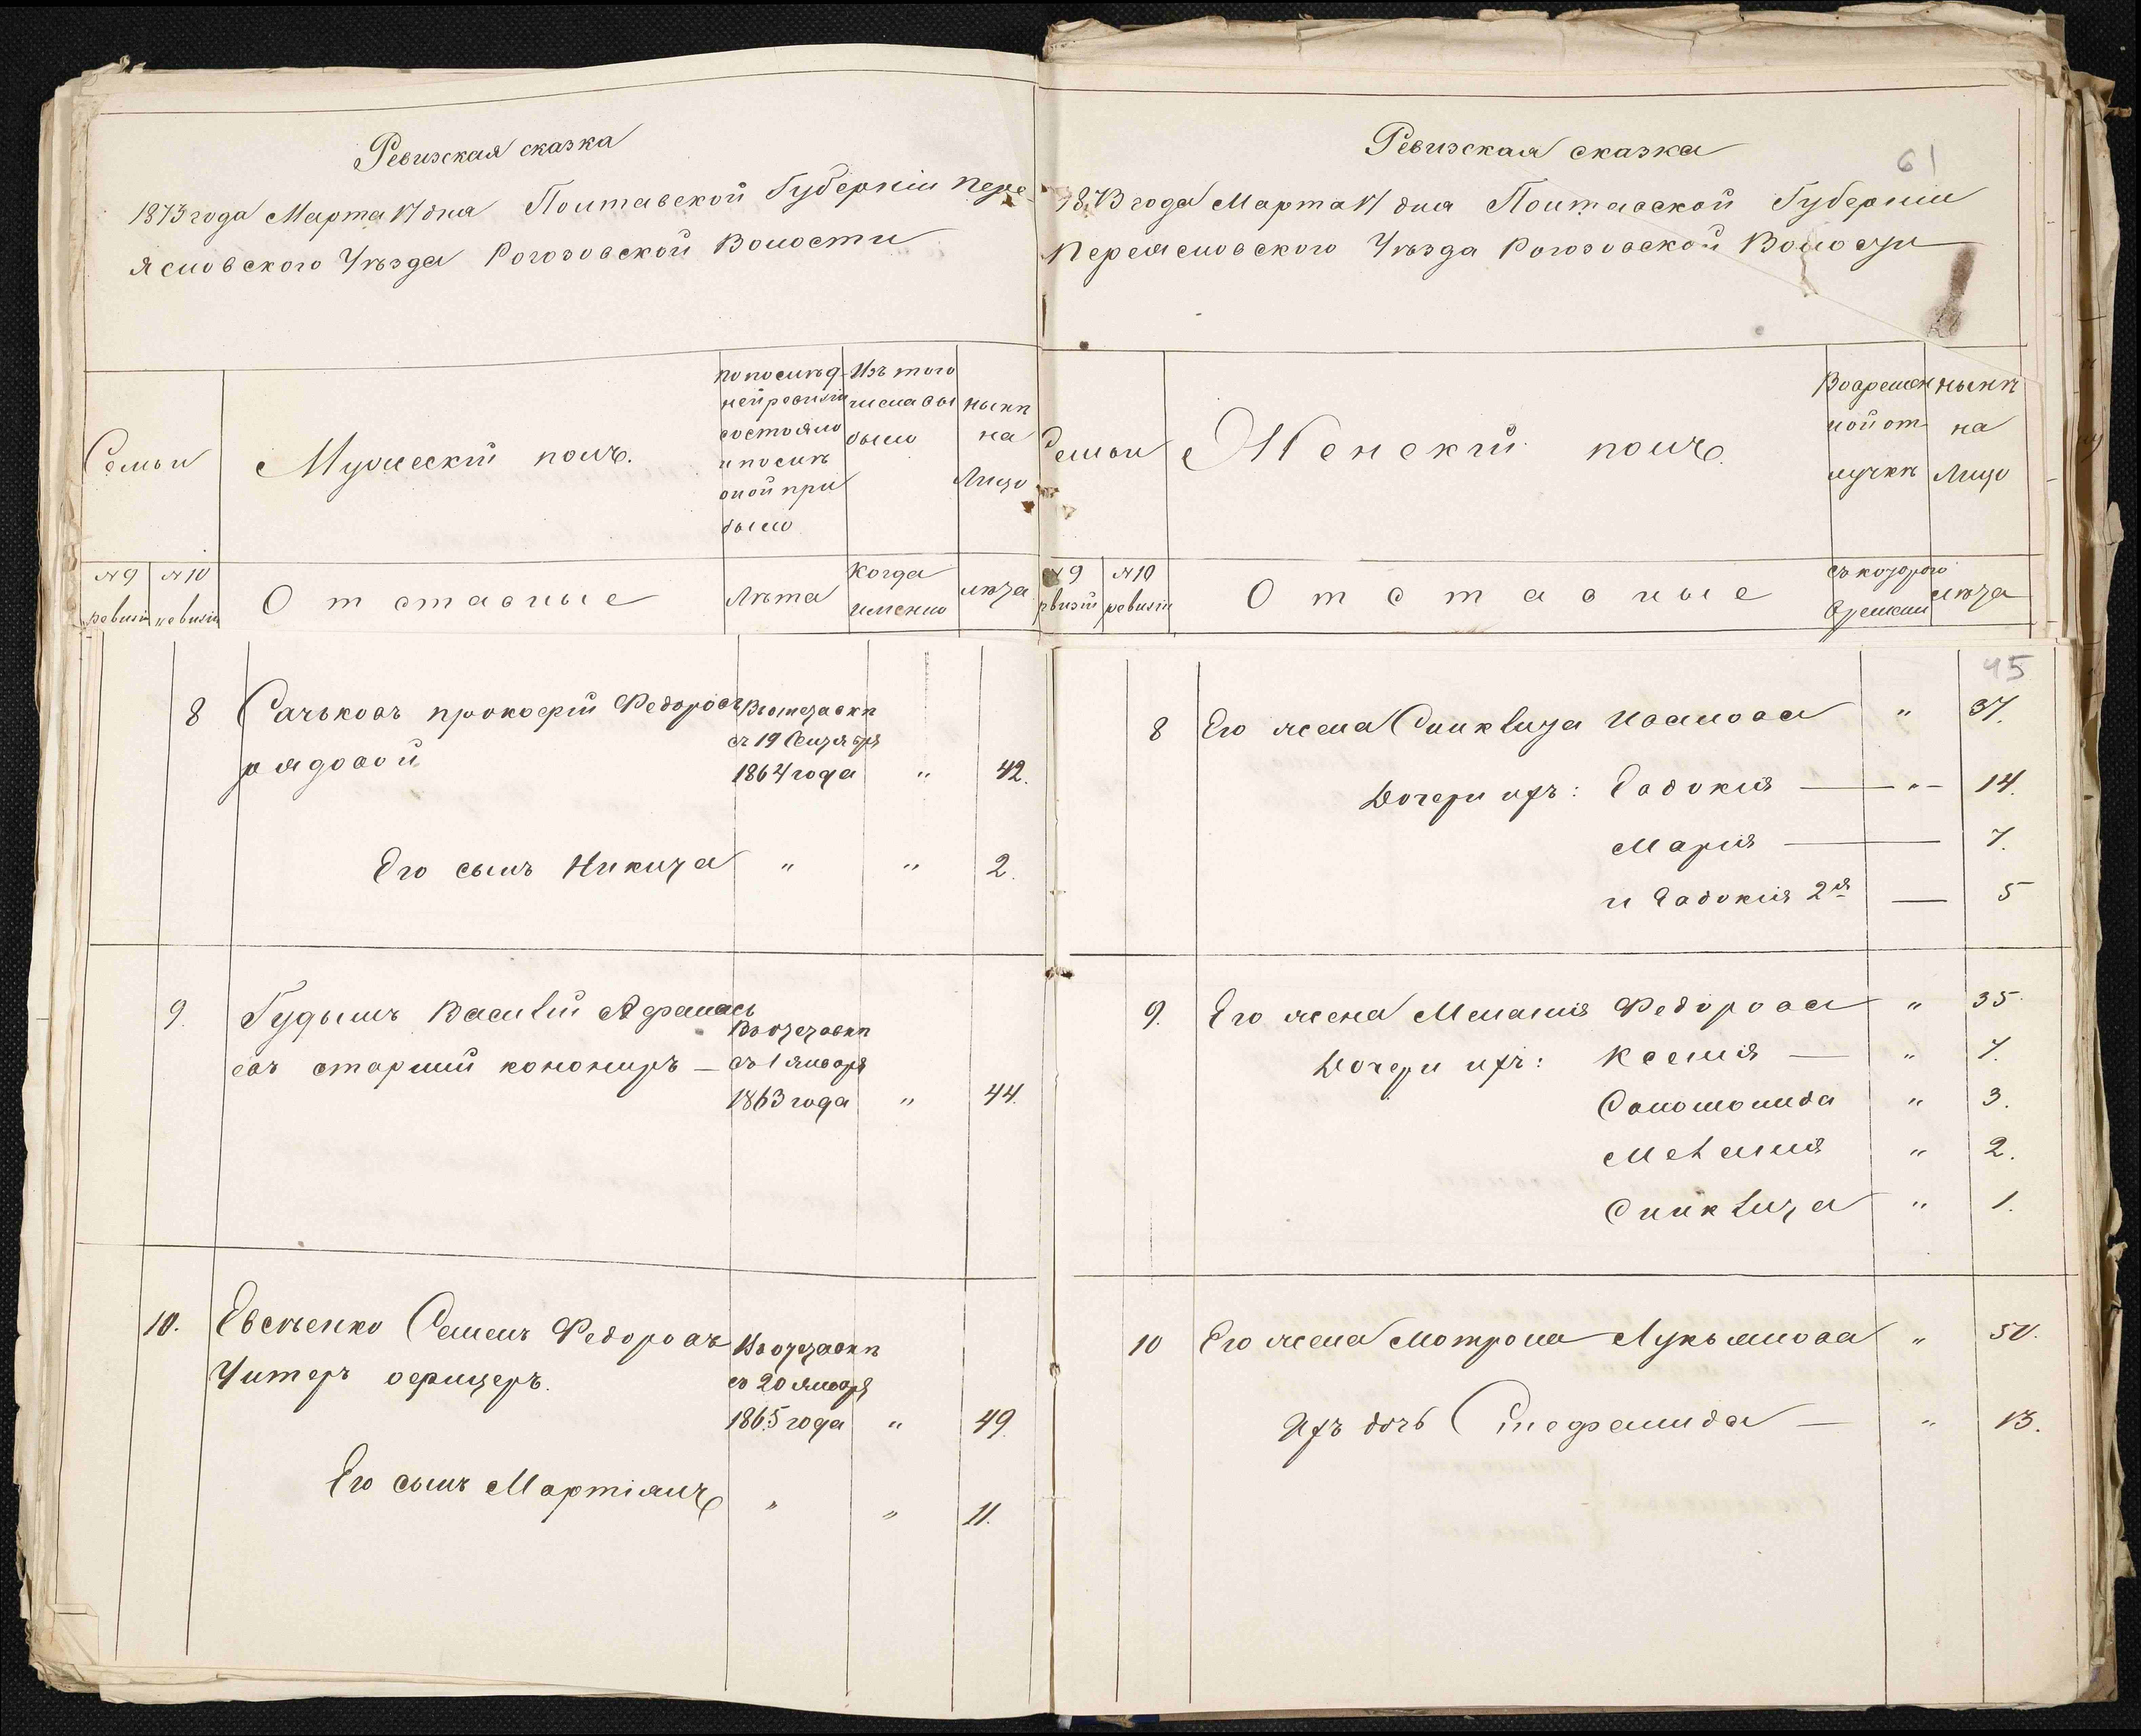 Ревизская сказка
1873 года Марта 17 дня Полтавской Губерніи Пере-
ясловского Уѣзда Рогозовской Волости
Семьи
Мужескій полъ.
По послѣд-
ней ревизіи
состояло
и послѣ
оной при
было
Изъ того
числа вы
было
нынѣ
на
Лицо
№ 9
ревизіи
№ 10
ревизіи
Отставные
Лѣта
Когда
именно
лѣта
8 Сачьковъ Прокофій Федоровъ
рядовой
Въ отставкѣ
съ 19 Сентября
1864 года " 42.
Его сынъ Никита " " 2.
9. Гудымъ Василій Афанась
евъ старшій конониръ —
Въ отставкѣ
съ 1 января
1863 года " 44.
10. Евсѣенко Семенъ Федоровъ
Унтеръ офицеръ.
Въ отставкѣ
съ 20 января
1865 года " 49.
Его сынъ Мартіанъ " " 11.
Ревизская сказка
61
1873 года Марта 17 дня Полтавской Губерніи
Переясловского Уѣзда Рогозовской Волости
Семьи
Женскій полъ
Во времен
ной от
лучкѣ
нынѣ
на
Лицо
№ 9
ревизіи
№ 10
ревизіи
Отставные
съ которого
времени
лѣта
45
8 Его жена Синклита Иванова " 37.
Дочери ихъ: Евдокія — " — 14.
Марія — 7.
и Евдокія 2я — 5
9. Его жена Меланія Федорова " 35.
Дочери ихъ: Ксенія — " 7.
Соломонида " 3.
Меланія " 2.
Синклита " 1.
10 Его жена Мотрона Лукьянова " 50.
Ихъ дочь Стефанида — " 13.